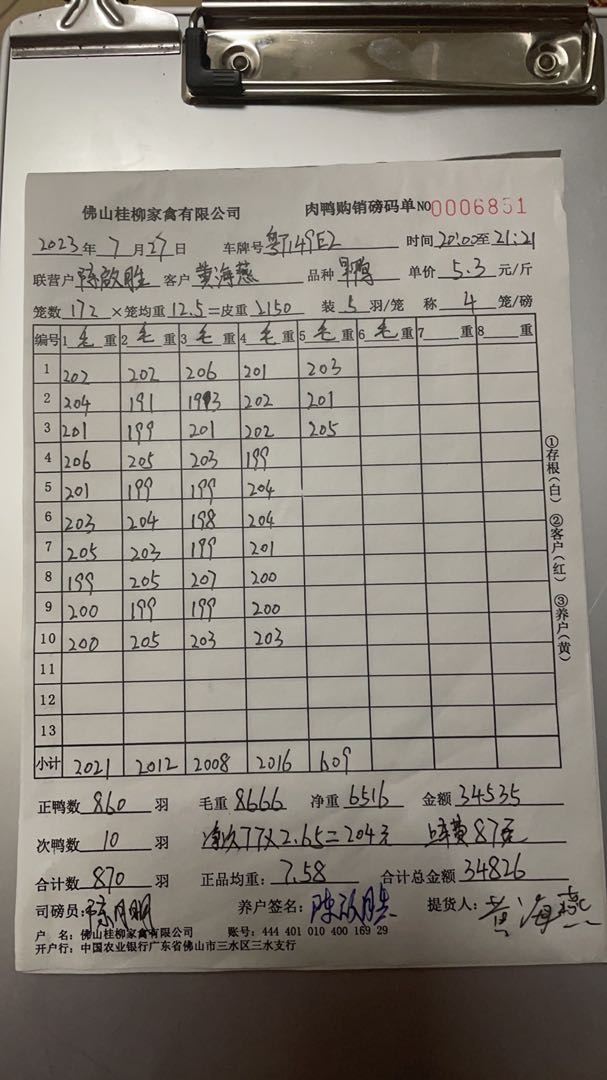 佛山桂柳家禽有限公司 肉鸭购销磅码单 NO 0006851
2023 年 7 月 27 日 车牌号 粤J149E2 时间 20:00 至 21:21
联营户 陈啟胜 客户 黄海燕 品种 旱鸭 单价 5.3 元/斤
笼数 172 ×笼均重 12.5 =皮重 2150 装 5 羽/笼 称 4 笼/磅
编号 1 毛 重 2 毛 重 3 毛 重 4 毛 重 5 毛 重 6 毛 重 7 重 8 重
1 202 202 206 201 203
2 204 191 193 202 201
3 201 199 201 202 205
4 206 205 203 199
5 201 199 199 204
6 203 204 198 204
7 205 203 199 201
8 199 205 207 200
9 200 199 199 200
10 200 205 203 203
11
12
13
小计 2021 2012 2008 2016 609
①存根(白) ②客户(红) ③养户(黄)
正鸭数 860 羽 毛重 8666 净重 6516 金额 34535
次鸭数 10 羽 77×2.65=204元 费87元
合计数 870 羽 正品均重: 7.58 合计总金额 34826
司磅员: 养户签名: 陈啟胜 提货人: 黄海燕
户 名: 佛山桂柳家禽有限公司 账号: 444 401 010 400 169 29
开户行: 中国农业银行广东省佛山市三水区三水支行